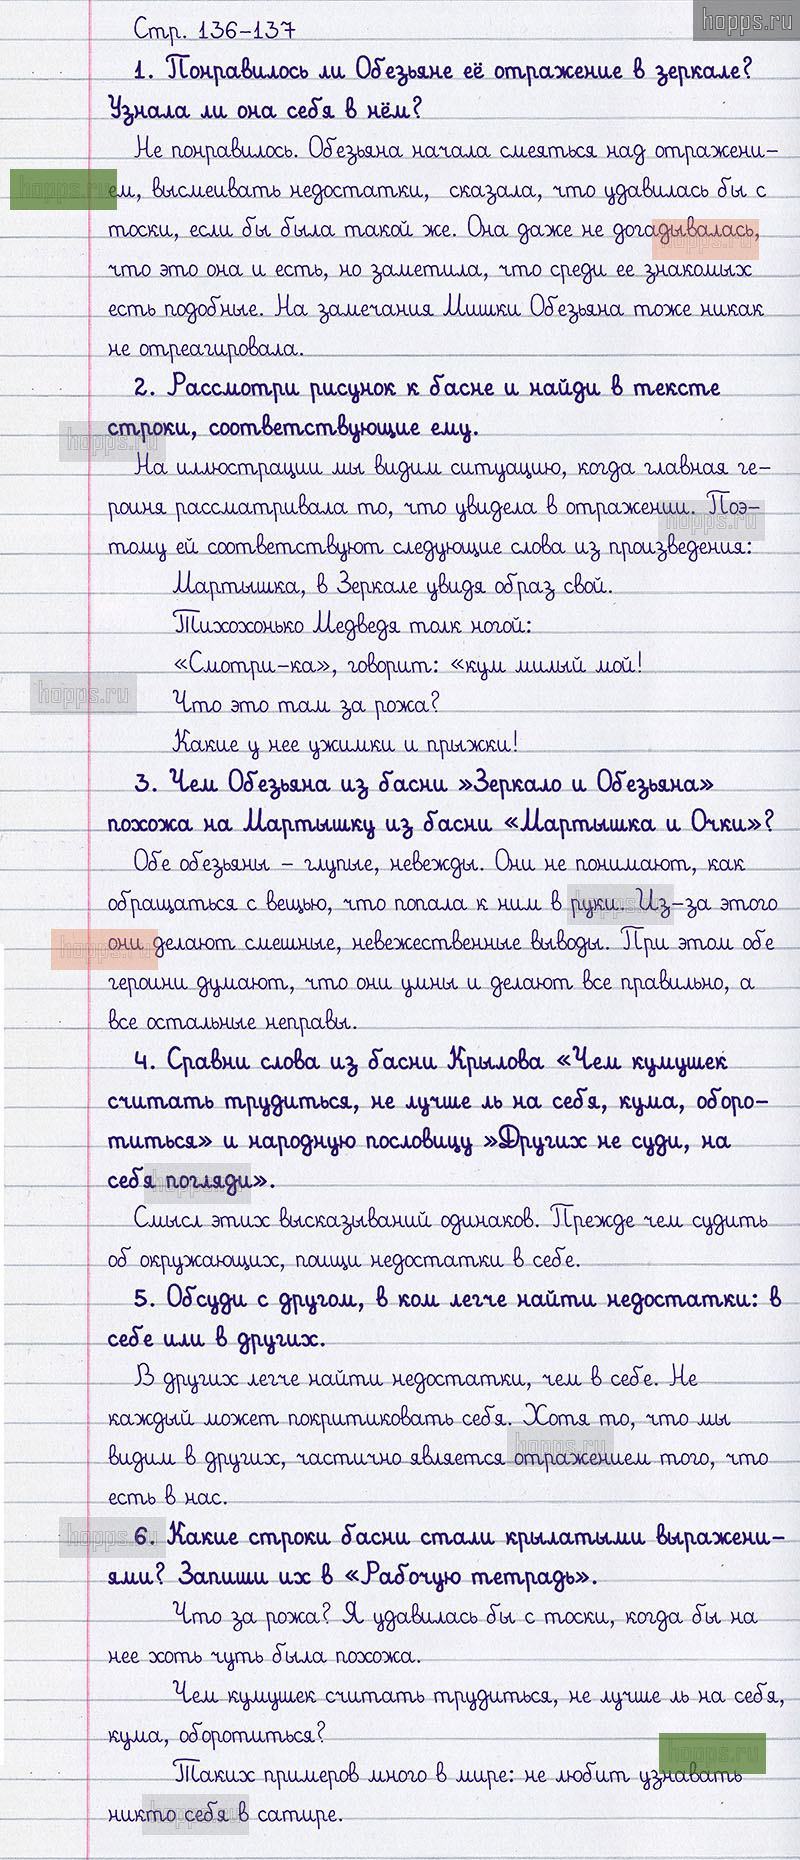 hopps.ru
Стр. 136-137
1. Понравилось ли Обезьяне её отражение в зеркале?
Узнала ли она себя в нём?
Не понравилось. Обезьяна начала смеяться над отражени-
ем, высмеивать недостатки, сказала, что удавилась бы с
hopps.ru
тоски, если бы была такой же. Она даже не догадывалась,
hopps.ru
что это она и есть, но заметила, что среди ее знакомых
есть подобные. На замечания Мишки Обезьяна тоже никак
не отреагировала.
2. Рассмотри рисунок к басне и найди в тексте
строки, соответствующие ему.
hopps.ru
На иллюстрации мы видим ситуацию, когда главная ге-
роиня рассматривала то, что увидела в отражении. Поэ-
hopps.ru
тому ей соответствуют следующие слова из произведения:
Мартышка, в Зеркале увидя образ свой.
Тихохонько Медведя толк ногой:
«Смотри-ка», говорит: «кум милый мой!
hopps.ru
Что это там за рожа?
Какие у нее ужимки и прыжки!
3. Чем Обезьяна из басни »Зеркало и Обезьяна»
похожа на Мартышку из басни «Мартышка и Очки»?
Обе обезьяны – глупые, невежды. Они не понимают, как
обращаться с вещью, что попала к ним в руки. Из-за этого
hopps.ru
они делают смешные, невежественные выводы. При этом обе
hopps.ru
героини думают, что они умны и делают все правильно, а
все остальные неправы.
4. Сравни слова из басни Крылова «Чем кумушек
считать трудиться, не лучше ль на себя, кума, оборо-
титься» и народную пословицу »Других не суди, на
себя погляди».
hopps.ru
Смысл этих высказываний одинаков. Прежде чем судить
об окружающих, поищи недостатки в себе.
5. Обсуди с другом, в ком легче найти недостатки: в
себе или в других.
В других легче найти недостатки, чем в себе. Не
каждый может покритиковать себя. Хотя то, что мы
hopps.ru
видим в других, частично является отражением того, что
есть в нас.
hopps.ru
6. Какие строки басни стали крылатыми выражени-
ями? Запиши их в «Рабочую тетрадь».
Что за рожа? Я удавилась бы с тоски, когда бы на
нее хоть чуть была похожа.
Чем кумушек считать трудиться, не лучше ль на себя,
кума, оборотиться?
hopps.ru
Таких примеров много в мире: не любит узнавать
никто себя в сатире.
hopps.ru